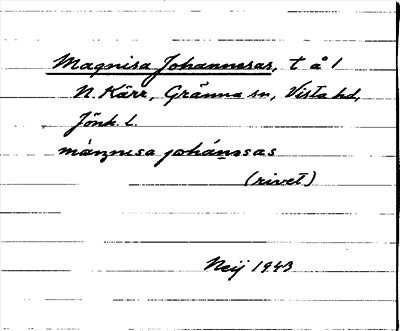 Magnisa Johannesas, t å l
N. Kärr, Gränna sn, Vista hd,
Jönk. l.
máŋnısa johánəsas
(rivet)
Neij 1943